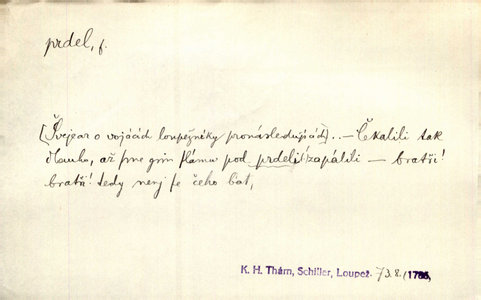 prdel, f.
[Švejcar o vojácích loupežníky pronásledujících]. – Čkalili tak
dlouho, až sme gim flámu pod prdelí zapálili – bratři!
bratři! tedy nenj se čeho bát,
K. H. Thám, Schiller, Loupež. 73.8. (1786,